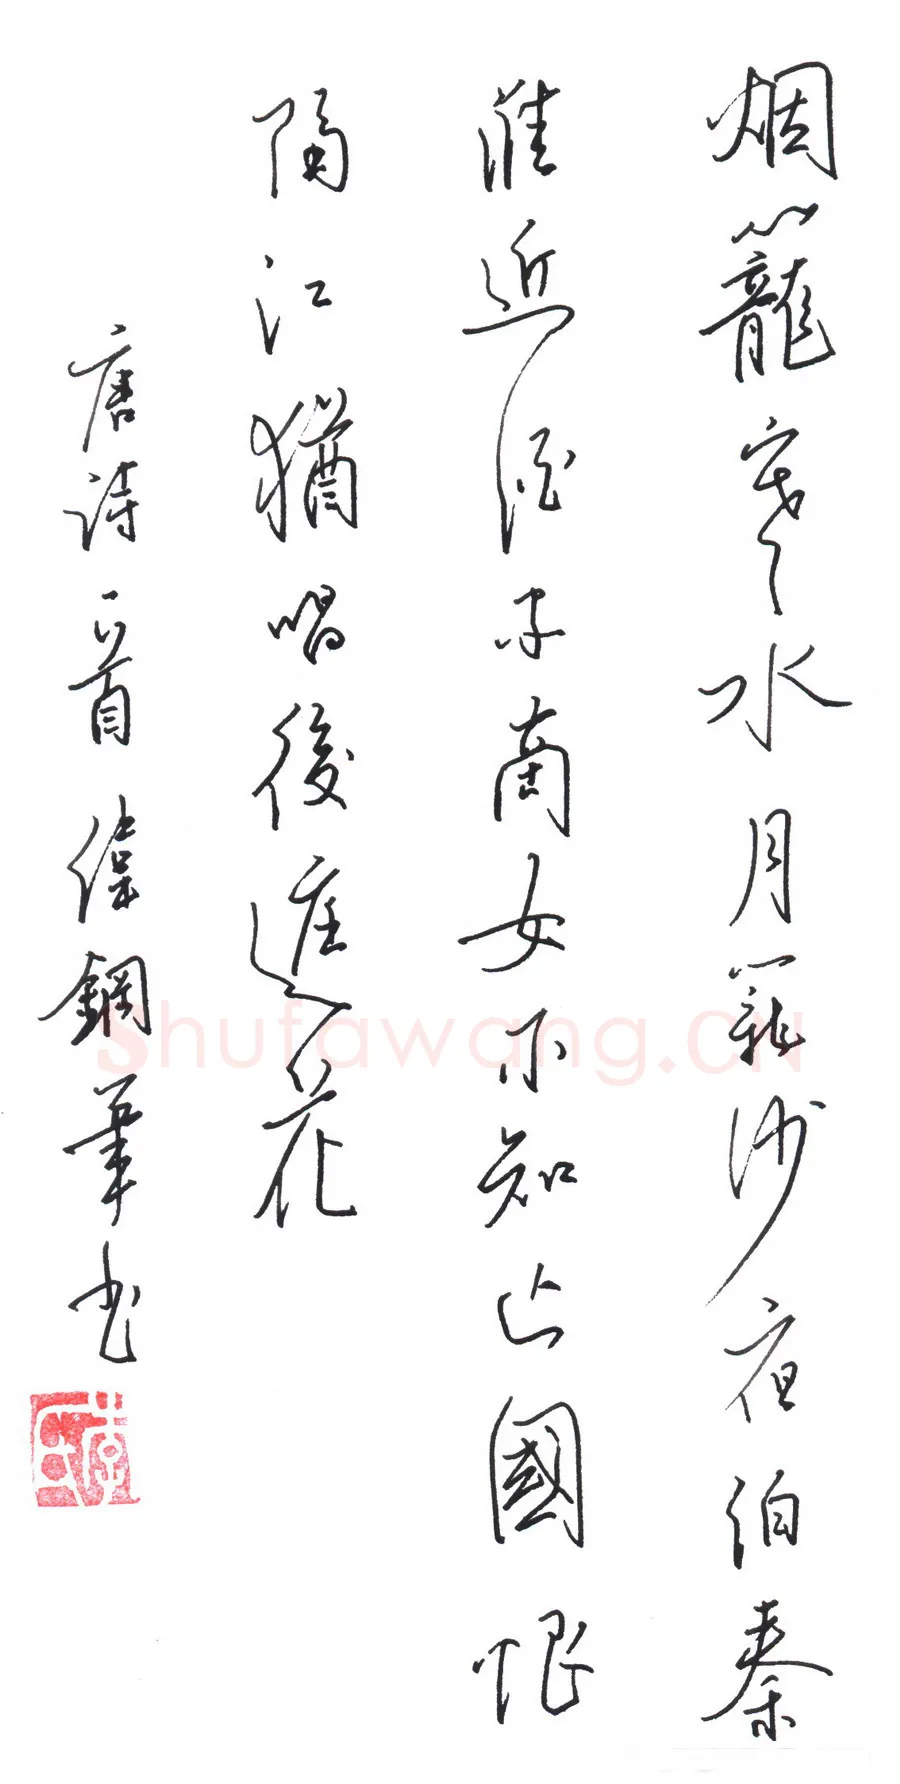 烟籠寒水月籠沙夜泊秦
淮近酒家商女不知亡國恨
隔江猶唱後庭花
唐詩一首偉鋼筆书
Shufawang.CN